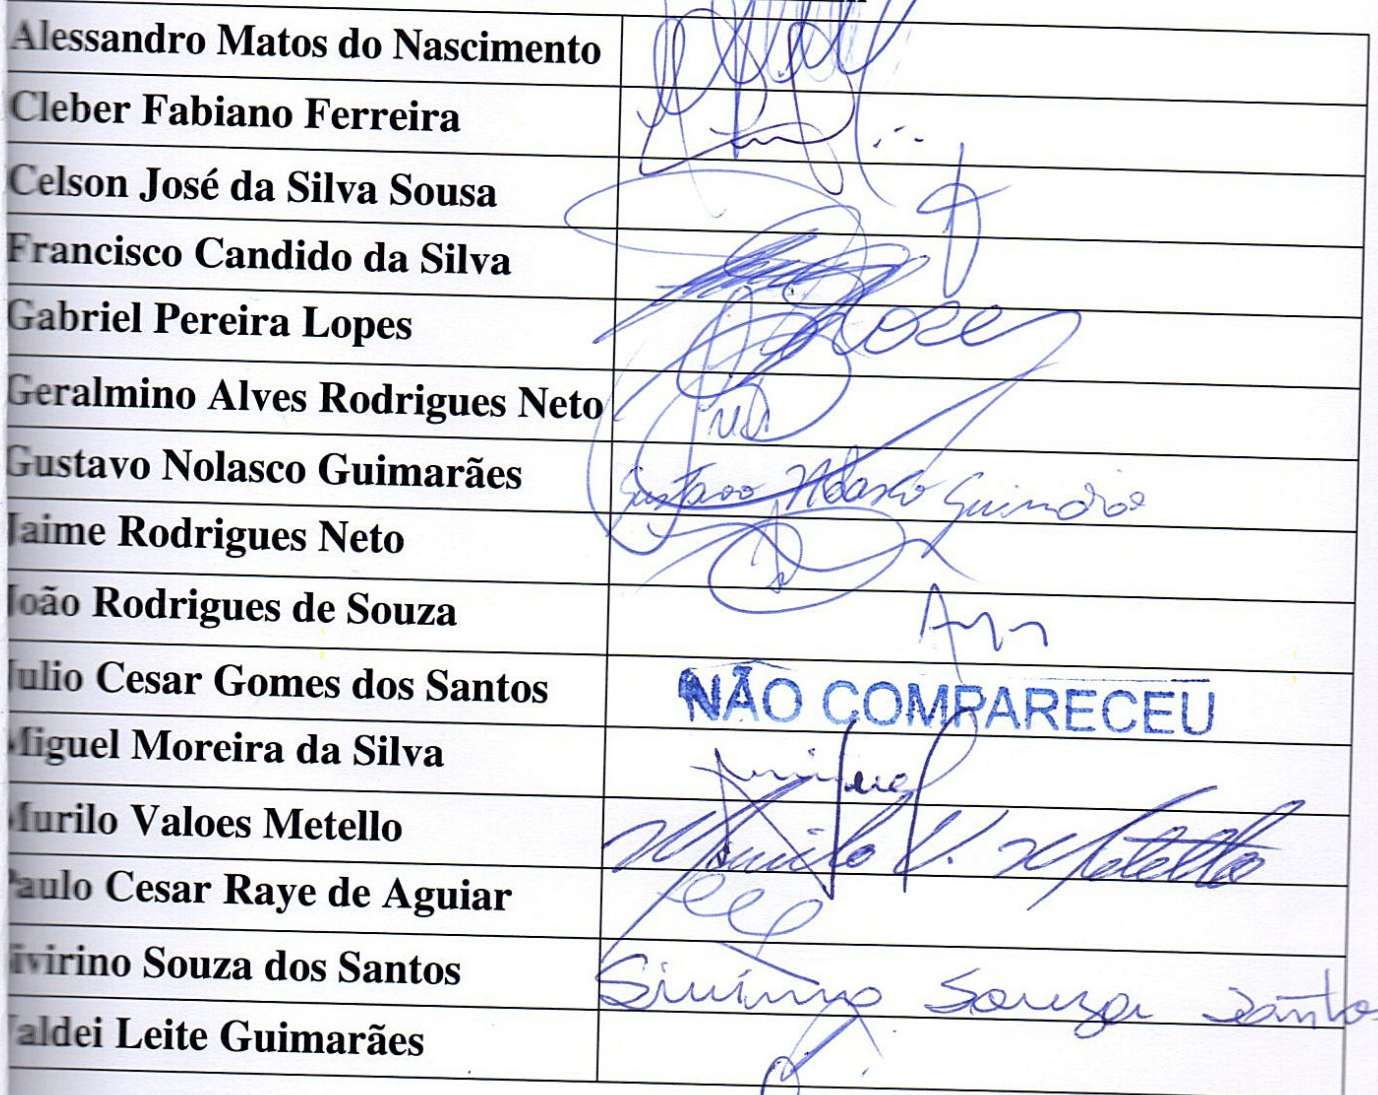 Alessandro Matos do Nascimento
Cleber Fabiano Ferreira
Celson José da Silva Sousa
Francisco Candido da Silva
Gabriel Pereira Lopes
Geralmino Alves Rodrigues Neto
Gustavo Nolasco Guimarães Gustavo Nolasco Guimarães
Jaime Rodrigues Neto
João Rodrigues de Souza
Julio Cesar Gomes dos Santos NÃO COMPARECEU
Miguel Moreira da Silva Miguel
Murilo Valoes Metello Murilo V. Metello
Paulo Cesar Raye de Aguiar
Sivirino Souza dos Santos Sivirino Souza Santos
Valdei Leite Guimarães